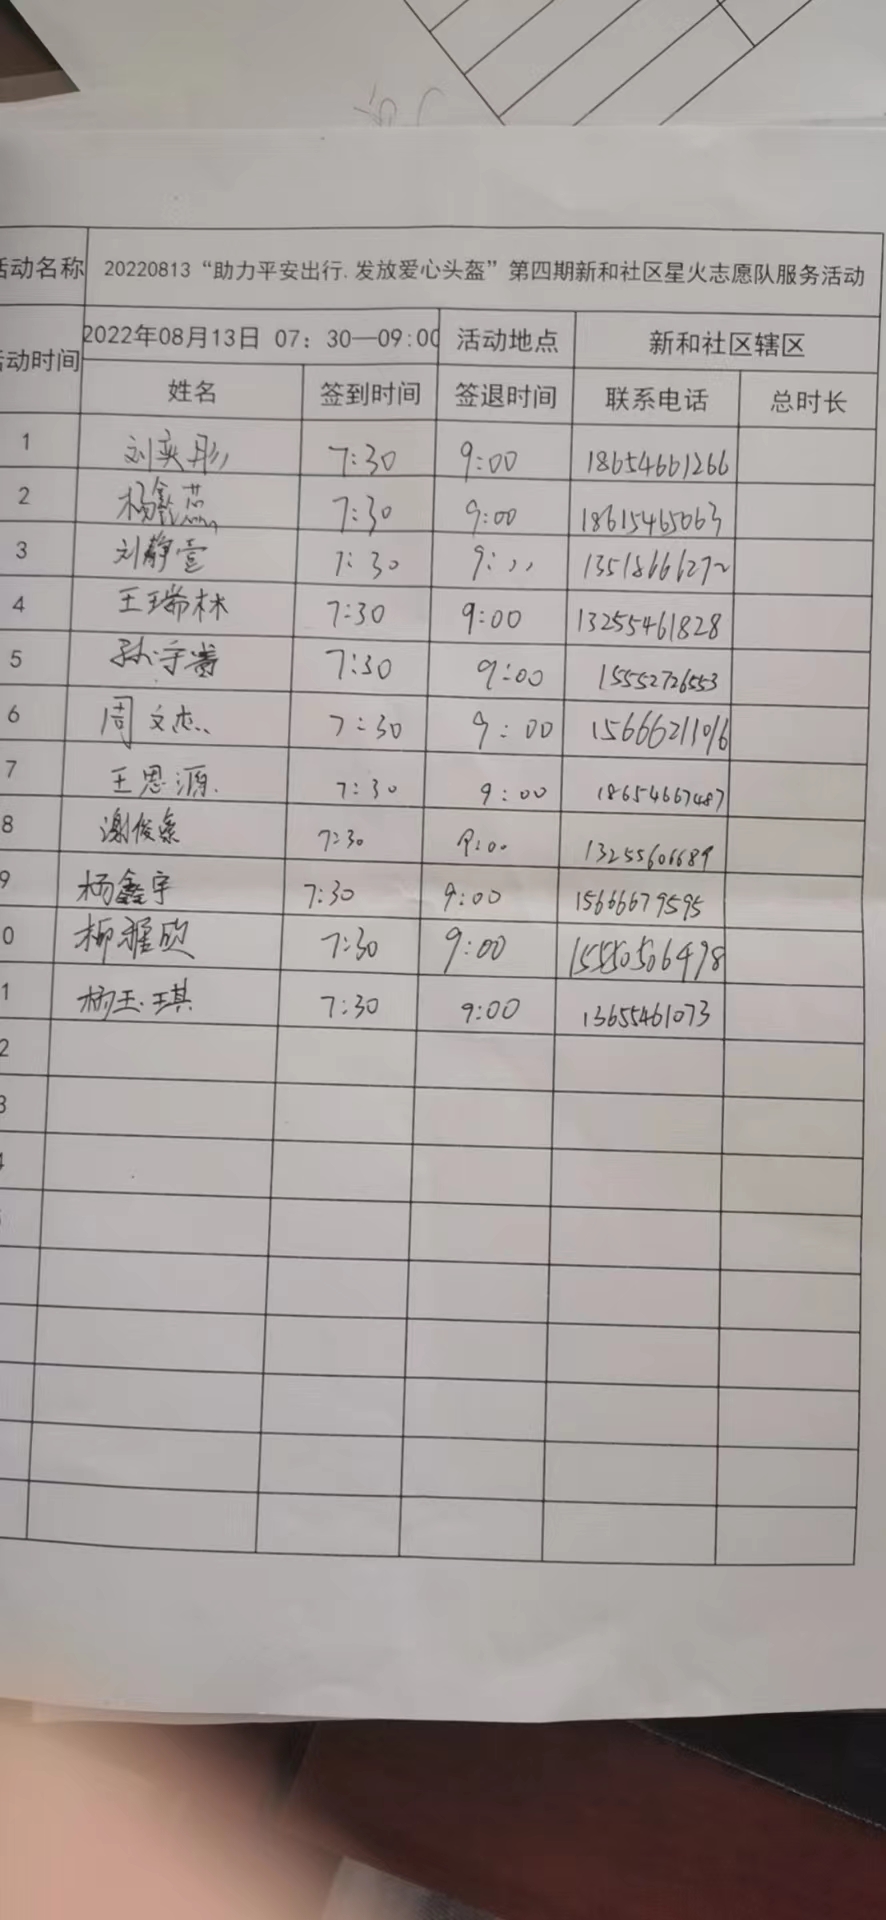 活动名称 20220813“助力平安出行.发放爱心头盔”第四期新和社区星火志愿队服务活动
动时间 2022年08月13日 07: 30—09:00 活动地点 新和社区辖区
姓名 签到时间 签退时间 联系电话 总时长
1 刘奕彤 7:30 9:00 18654661266
2 杨鑫蕊 7:30 9:00 18615465063
3 刘静萱 7:30 9: 〃 1351866627~
4 王瑞林 7:30 9:00 13255461828
5 孙宇 7:30 9:00 15552726553
6 周文杰 7:30 9:00 15666211016
7 王思源 7:30 9:00 18654667487
8 谢俊 7:30 9:00 13255606689
9 杨鑫宇 7:30 9:00 15666679595
0 柳雅欣 7:30 9:00 15550506498
1 杨玉琪 7:30 9:00 13655461073
2
3
4